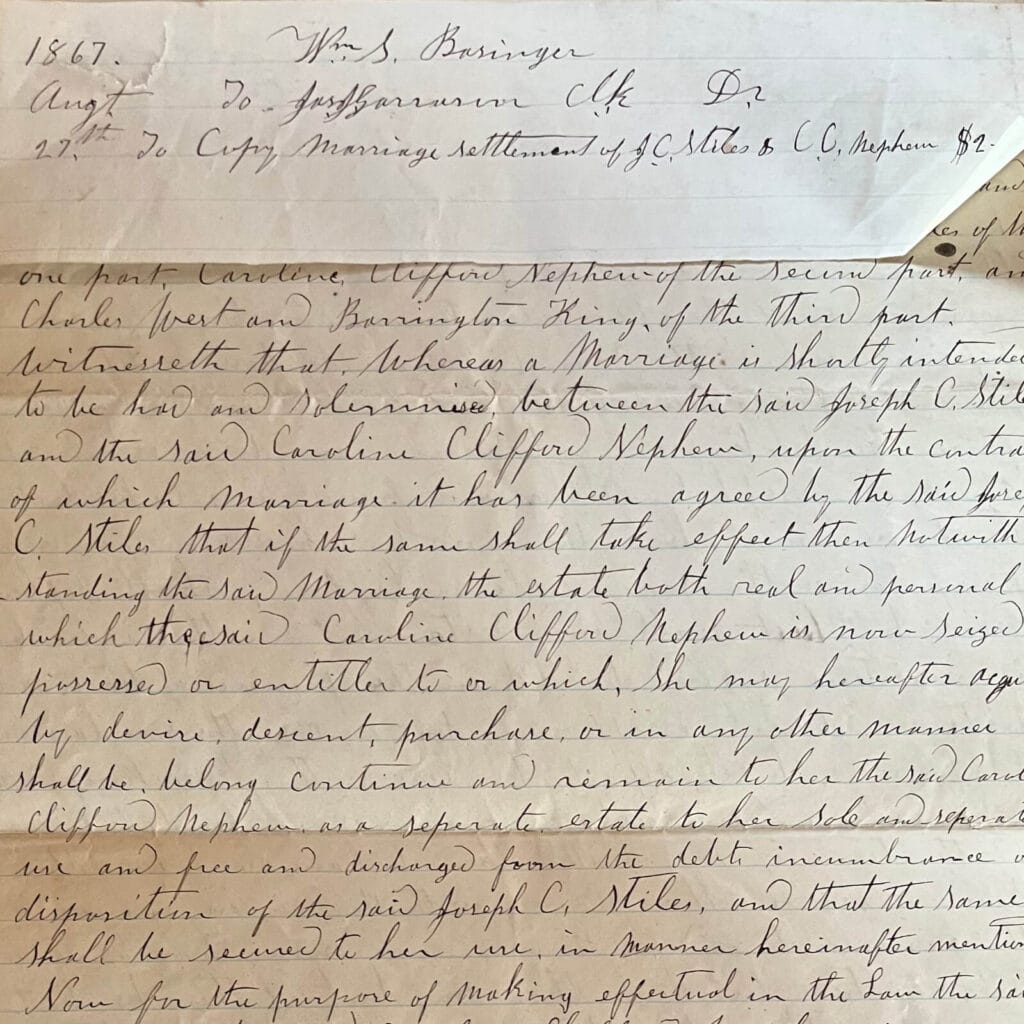 1867. Wm. S. Basinger
Augt To Clk Dr
27.th To Copy Marriage settlement of J.C. Stiles & C.C. Nephew $2.
and
of
one part, Caroline, Clifford Nephew of the second part, an
Charles West and Barrington King, of the third part.
Witnesseth that, Whereas a Marriage is shortly intended
to be had and solemnised, between the said Joseph C. Stile
and the said Caroline Clifford Nephew, upon the contra
of which Marriage it has been agreed by the said Jose
C. Stiles that if the same shall take effect then notwith
standing the said Marriage, the estate both real and personal
which the said Caroline Clifford Nephew is now seized
possessed or entitled to or which, She may hereafter acqu
by devise, descent, purchase, or in any other manner
shall be, belong continue and remain to her the said Carol
Clifford Nephew, as a seperate, estate to her sole and seperat
use and free and discharged from the debts incumbrance o
disposition of the said Joseph C, Stiles, and that the same
shall be secured to her use, in manner hereinafter mention
Now for the purpose of making effectual in the Law the sai